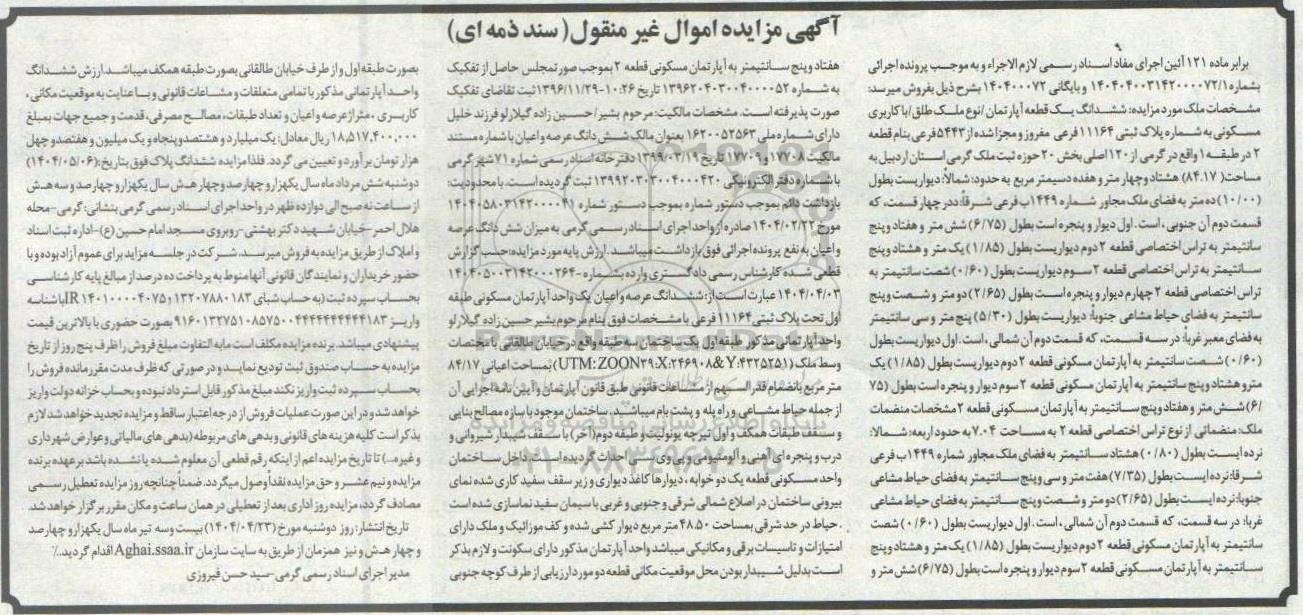 آگهی مزایده اموال غیر منقول( سند ذمه ای)
برابر ماده ۱۲۱ آئین اجرای مفاد اسناد رسمی لازم الاجراء و به موجب پرونده اجرائی
بشماره ۱۴۰۴۰۴۰۰۳۱۴۲۰۰۰۰۷۲/۱ و بایگانی ۱۴۰۴۰۰۰۷۲ بشرح ذیل بفروش میرسد:
مشخصات ملک مورد مزایده: ششدانگ یک قطعه آپارتمان /نوع ملک طلق/با کاربری
مسکونی به شماره پلاک ثبتی ۱۱۱۶۴ فرعی مفروز و مجزا شده از ۵۴۴۳ فرعی بنام قطعه
۲ در طبقه ۱ واقع در گرمی از ۱۲۰ اصلی بخش ۲۰ حوزه ثبت ملک گرمی استان اردبیل به
مساحت( ۸۴.۱۷) هشتاد و چهار متر و هفده دسیمتر مربع به حدود: شمالاً: دیواریست بطول
(۱۰/۰۰) ده متر به فضای ملک مجاور شماره ۱۴۴۹ب فرعی شرقاً: در چهار قسمت، که
قسمت دوم آن جنوبی، است. اول دیوار و پنجره است بطول (۶/۷۵) شش متر و هفتاد وپنج
سانتیمتر به تراس اختصاصی قطعه ۲ دوم دیواریست بطول (۱/۸۵) یک متر و هشتاد وپنج
سانتیمتر به تراس اختصاصی قطعه ۲ سوم دیواریست بطول (۰/۶۰) شصت سانتیمتر به
تراس اختصاصی قطعه ۲ چهارم دیوار و پنجره است بطول (۲/۶۵) دو متر و شصت وپنج
سانتیمتر به فضای حیاط مشاعی جنوباً: دیواریست بطول (۵/۳۰) پنج متر و سی سانتیمتر
به فضای معبر غرباً: در سه قسمت، که قسمت دوم آن شمالی، است. اول دیواریست بطول
(۰/۶۰) شصت سانتیمتر به آپارتمان مسکونی قطعه ۲ دوم دیواریست بطول (۱/۸۵) یک
مترو هشتاد وپنج سانتیمتر به آپارتمان مسکونی قطعه ۲ سوم دیوار و پنجره است بطول (۷۵
/۶) شش متر و هفتاد وپنج سانتیمتر به آپارتمان مسکونی قطعه ۲ مشخصات منضمات
ملک: منضماتی از نوع تراس اختصاصی قطعه ۲ به مساحت ۷.۰۴ به حدود اربعه: شمالا:
نرده ایست بطول (۰/۸۰) هشتاد سانتیمتر به فضای ملک مجاور شماره ۱۴۴۹ ب فرعی
شرقا: نرده ایست بطول (۷/۳۵) هفت متر و سی وپنج سانتیمتر به فضای حیاط مشاعی
جنوبا: نرده ایست بطول (۲/۶۵) دو متر و شصت وپنج سانتیمتر به فضای حیاط مشاعی
غربا: در سه قسمت، که قسمت دوم آن شمالی، است. اول دیواریست بطول (۰/۶۰) شصت
سانتیمتر به آپارتمان مسکونی قطعه ۲ دوم دیواریست بطول (۱/۸۵) یک متر و هشتاد وپنج
سانتیمتر به آپارتمان مسکونی قطعه ۲ سوم دیوار و پنجره است بطول (۶/۷۵) شش متر و
هفتاد وپنج سانتیمتر به آپارتمان مسکونی قطعه ۲ بموجب صورتمجلس حاصل از تفکیک
به شماره ۱۳۹۶۲۰۴۰۳۰۰۴۰۰۰۰۵۲ تاریخ ۱۰:۲۶-۱۳۹۶/۱۱/۲۹ ثبت تقاضای تفکیک
صورت پذیرفته است. مشخصات مالکیت: مرحوم بشیر/ حسین زاده گیلارلو فرزند خلیل
دارای شماره ملی ۱۶۲۰۰۵۲۵۶۳ بعنوان مالک شش دانگ عرصه و اعیان با شماره مستند
مالکیت ۱۷۷۰۸ و ۱۷۷۰۹ تاریخ ۱۳۹۹/۰۳/۱۹ دفترخانه اسناد رسمی شماره ۷۱ شهر گرمی
با شماره دفتر الکترونیکی ۱۳۹۹۲۰۳۰۳۰۰۴۰۰۰۴۲۰ ثبت گردیده است. با محدودیت:
بازداشت دائم بموجب دستور شماره بموجب دستور شماره ۱۴۰۴۰۵۸۰۳۱۴۲۰۰۰۰۴۱
مورخ ۱۴۰۴/۰۲/۲۲ صادره از واحد اجرای اسناد رسمی گرمی به میزان شش دانگ عرصه
و اعیان به نفع پرونده اجرائی فوق بازداشت میباشد. ارزش پایه مورد مزایده: حسب گزارش
قطعی شده کارشناس رسمی دادگستری وارده بشماره ۱۴۰۴۰۵۰۰۳۱۴۲۰۰۰۲۶۴-
۱۴۰۴/۰۴/۰۳ عبارت است از: ششدانگ عرصه و اعیان یک واحد آپارتمان مسکونی طبقه
اول تحت پلاک ثبتی ۱۱۱۶۴ فرعی با مشخصات فوق بنام مرحوم بشیر حسین زاده گیلارلو
واحد آپارتمانی مذکور طبقه اول یک ساختمان سه طبقه واقع در خیابان طالقانی با مختصات
وسط ملک (UTM: ZOON۳۹:X:۲۴۶۹۰۸& Y:۴۳۲۵۲۵۱) بمساحت اعیانی ۸۴/۱۷
متر مربع بانضمام قدرالسهم از مشاعات قانونی طبق قانون آپارتمان و آیین نامه اجرایی آن
از جمله حیاط مشاعی و راه پله و پشت بام میباشد. ساختمان موجود با سازه مصالح بنایی
و سقف طبقات همکف و اول تیرچه یونولیت و طبقه دوم (آخر) با سقف شیبدار شیروانی و
درب و پنجره ای آهنی و آلومنیومی و پی وی سی احداث گردیده است. داخل ساختمان
واحد مسکونی قطعه یک دو خوابه، دیوارها کاغذ دیواری و زیر سقف سفید کاری شده نمای
بیرونی ساختمان در اضلاع شمالی شرقی و جنوبی و غربی با سیمان سفید نماسازی شده است
. حیاط در حد شرقی بمساحت ۴۸.۵۰ متر مربع دیوار کشی شده و کف موزائیک و ملک دارای
امتیازات و تاسیسات برقی و مکانیکی میباشد واحد آپارتمان مذکور دارای سکونت و لازم بذکر
است بدلیل شیبدار بودن محل موقعیت مکانی قطعه دو مورد ارزیابی از طرف کوچه جنوبی
بصورت طبقه اول و از طرف خیابان طالقانی بصورت طبقه همکف میباشد ارزش ششدانگ
واحد آپارتمانی مذکور با تمامی متعلقات و مشاعات قانونی و با عنایت به موقعیت مکانی ،
کاربری ، متراژ عرصه و اعیان و تعداد طبقات، مصالح مصرفی، قدمت و جمیع جهات بمبلغ
۱۸،۵۱۷،۴۰۰،۰۰۰ ریال معادل: یک میلیارد و هشتصد و پنجاه و یک میلیون و هفتصد و چهل
هزار تومان برآورد و تعیین می گردد. فلذا مزایده ششدانگ پلاک فوق بتاریخ: (۱۴۰۴/۰۵/۰۶)
دوشنبه شش مرداد ماه سال یکهزار و چهارصد و چهار هـش سال یکهزار و چهار صد و سه هـش
از ساعت نه صبح الی دوازده ظهر در واحد اجرای اسناد رسمی گرمی بنشانی: گرمی-محله
هلال احمر-خیابان شهید دکتر بهشتی-روبروی مسجد امام حسین (ع)-اداره ثبت اسناد
و املاک از طریق مزایده به فروش میرسد. شرکت در جلسه مزاید برای عموم آزاد بوده و با
حضور خریداران و نمایندگان قانونی آنها منوط به پرداخت ده درصد از مبالغ پایه کارشناسی
بحساب سپرده ثبت (به حساب شبای IR ۱۴۰۱۰۰۰۰۴۰۷۵۰۱۳۲۰۷۸۸۰۱۸۳ باشناسه
واریز ۹۱۶۰۱۳۲۷۵۱۰۸۵۷۵۰۰۴۴۴۴۴۴۴۴۴۴۱۸۳ بصورت حضوری با بالاترین قیمت
پیشنهادی میباشد. برنده مزایده مکلف است مابه التفاوت مبلغ فروش را ظرف پنج روز از تاریخ
مزایده به حساب صندوق ثبت تودیع نماید و در صورتی که ظرف مدت مقرر مانده فروش را
بحساب سپرده ثبت واریز نکند مبلغ مذکور قابل استرداد نبوده و بحساب خزانه دولت واریز
خواهد شد و در این صورت عملیات فروش از درجه اعتبار ساقط و مزایده تجدید خواهد شد لازم
بذکر است کلیه هزینه های قانونی و بدهی های مربوطه (بدهی های مالیاتی و عوارض شهرداری
و غیره..) تا تاریخ مزایده اعم از اینکه رقم قطعی آن معلوم شده یا نشده باشد بر عهده برنده
مزایده و نیم عشر و حق مزایده نقداً وصول میگردد. ضمناً چنانچه روز مزایده تعطیل رسمی
مصادف گردد، مزایده روز اداری بعد از تعطیلی در همان ساعت و مکان مقرر برگزار خواهد شد.
تاریخ انتشار: روز دوشنبه مورخ (۱۴۰۴/۰۴/۲۳) بیست و سه تیر ماه سال یکهزار و چهار صد
و چهار هـش و نیز همزمان از طریق به سایت سازمان Aghai.ssaa.ir اقدام گردید.٪
مدیر اجرای اسناد رسمی گرمی-سید حسن فیروزی